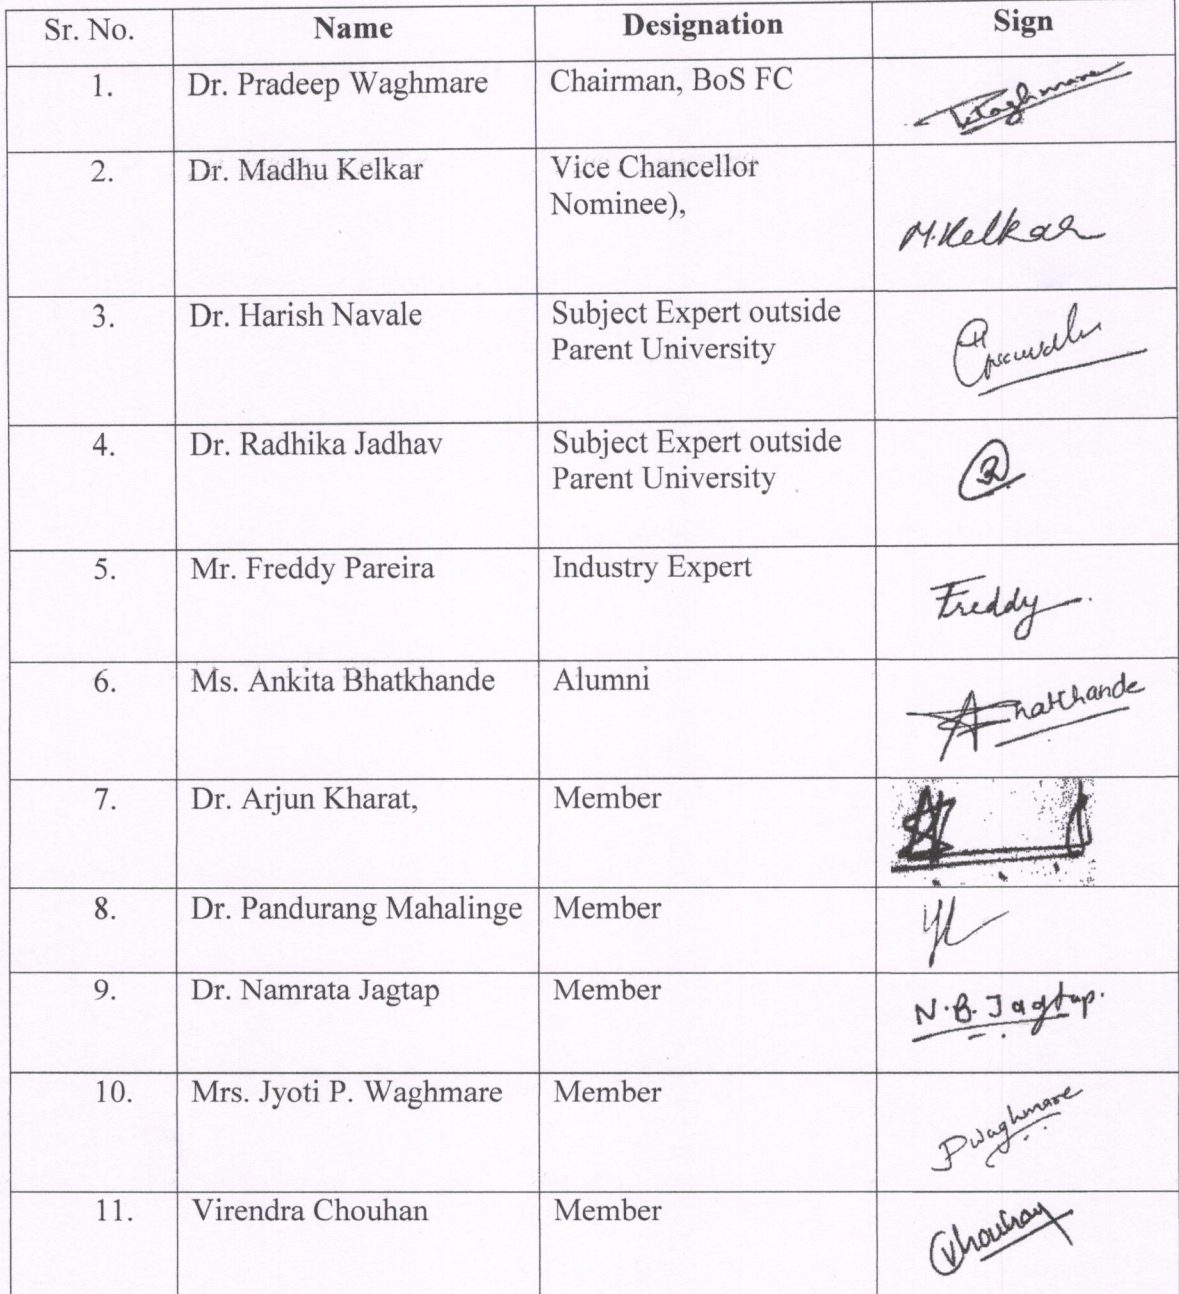 Sr. No. Name Designation Sign
1. Dr. Pradeep Waghmare Chairman, BoS FC Waghmare
2. Dr. Madhu Kelkar Vice Chancellor
Nominee),
M.Kelkar
3. Dr. Harish Navale Subject Expert outside
Parent University
4. Dr. Radhika Jadhav Subject Expert outside
Parent University
5. Mr. Freddy Pareira Industry Expert
Freddy
6. Ms. Ankita Bhatkhande Alumni
7. Dr. Arjun Kharat, Member
8. Dr. Pandurang Mahalinge Member
9. Dr. Namrata Jagtap Member N.B. Jagtap.
10. Mrs. Jyoti P. Waghmare Member
Pwaghmare
11. Virendra Chouhan Member